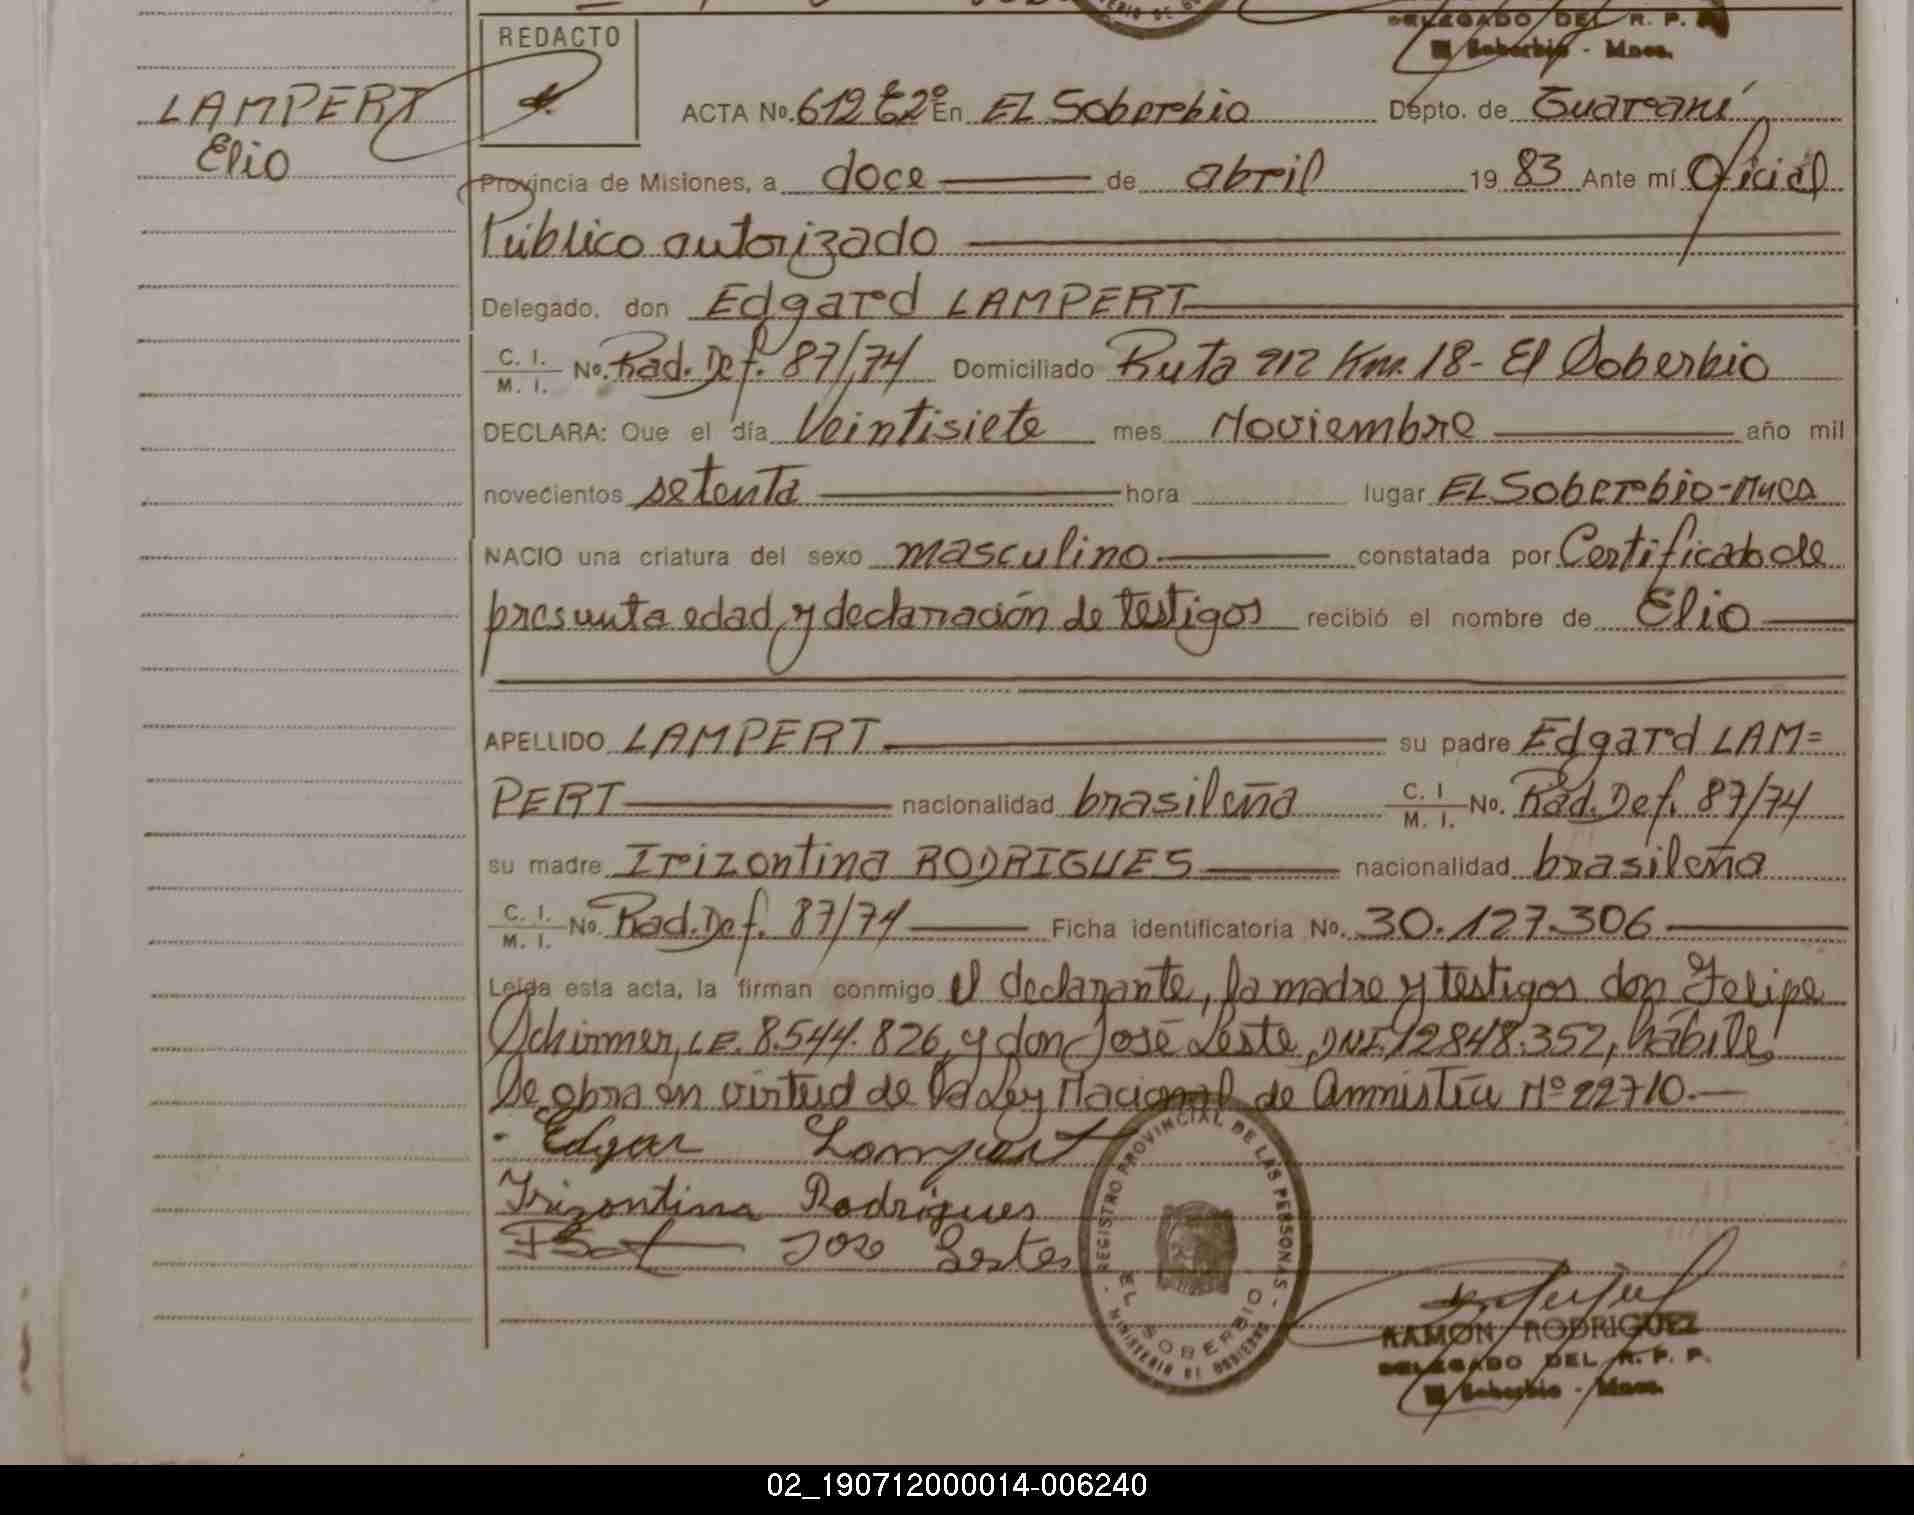 DELEGADO DEL R. P. P.
El Soberbio - Mnes.
REDACTO
LAMPERT
Elio
ACTA No. 612 E2º En EL Soberbio Depto. de Guaraní
Provincia de Misiones, a doce de abril 1983 Ante mí Oficial
Público autorizado
Delegado, don Edgard LAMPERT
C. I. / M. I. No. Rad. Def. 87/74 Domiciliado Ruta 212 Km. 18 - El Soberbio
DECLARA: Que el día Veintisiete mes Noviembre año mil
novecientos setenta hora lugar EL Soberbio-Mnes
NACIO una criatura del sexo masculino constatada por Certificado de
presunta edad y declaración de testigos recibió el nombre de Elio
APELLIDO LAMPERT su padre Edgard LAM=
PERT nacionalidad brasileña C. I / M. I. No. Rad. Def. 87/74
su madre Irizontina RODRIGUES nacionalidad brasileña
C. I. / M. I. No. Rad. Def. 87/74 Ficha identificatoria No. 30.127.306
Leída esta acta, la firman conmigo el declarante, la madre y testigos don Felipe
Schirmer, L.E. 8.544.826, y don José Leste, DNI. 12848.352, hábiles
Se obra en virtud de la Ley Nacional de Amnistía Nº 22710.-
Edgar Lampert
Irizontina Rodrigues
Jose Lestes
REGISTRO PROVINCIAL DE LAS PERSONAS
EL SOBERBIO
MINISTERIO DE GOBIERNO
RAMON RODRIGUEZ
DELEGADO DEL R. P. P.
El Soberbio - Mnes.
02_190712000014-006240